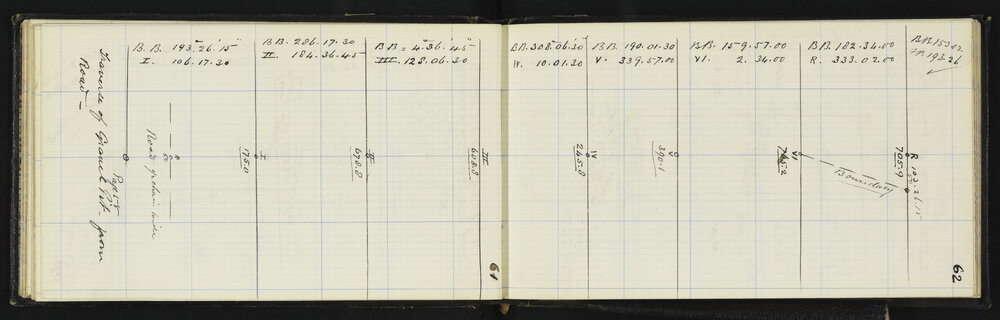 Traverse of Gravel Pit from
Road –
Page 5
B.B. 193°.26'.15"
I. 106.17.30
B.B. 286.17.30
II. 184.36.45
B.B = 4°.36'.45"
III. 128.06.30
B.B. 308°.06'.30"
IV. 10.01.30
B.B. 190.01.30
V. 339.57.00
B.B. 159.57.00
VI. 2.34.00
B.B. 182.34.00
R. 333.02.00
B.B. 153.02
193.26
Road
I
175.0
II
678.8
III
608.8
IV
245.8
V
390.1
VI
Boundary
R
705.9
193.26.15
61
62